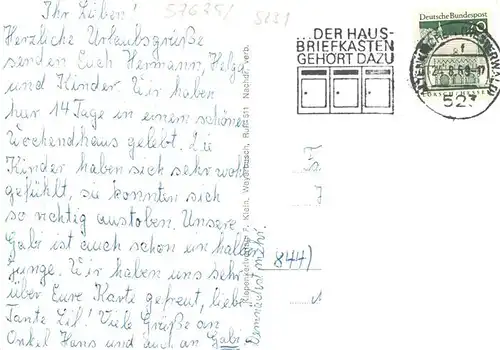 57635/ 5231
Ihr Lieben!
Herzliche Urlaubsgrüße
senden Euch Hermann, Helga
und Kinder. Wir haben
hier 14 Tage in einem schönen
Wochendhaus gelebt. Die
Kinder haben sich sehr wohl
gefühlt, sie konnten sich
so richtig austoben. Unsere
Gabi ist auch schon ein halber
Junge. Wir haben uns sehr
über Eure Karte gefreut, liebe
Tante Lil! Viele Grüße an
Onkel Hans und auch an Gabi
Demnächst mehr.
F. Klein, Weyerbusch, Ruf 611 Nachdr. verb.
...DER HAUS-
BRIEFKASTEN
GEHÖRT DAZU
Deutsche Bundespost
24.8.69-17
523
844)